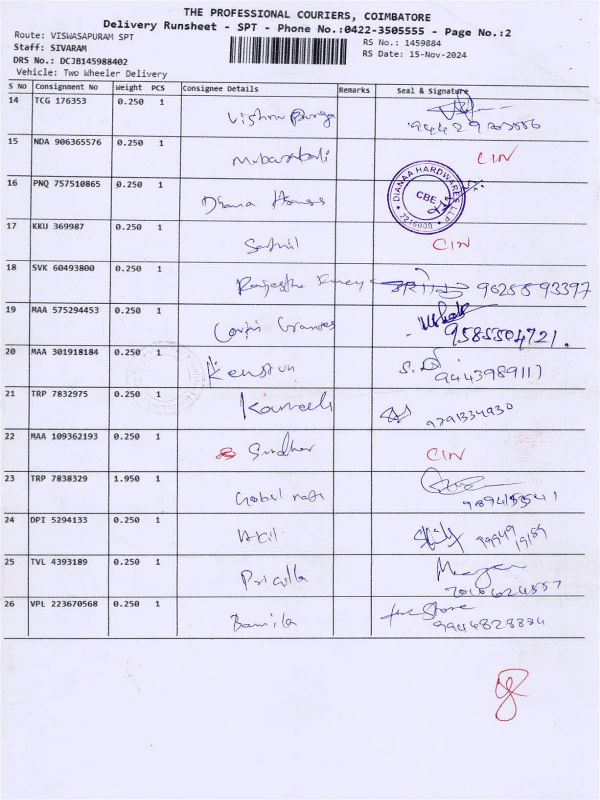 THE PROFESSIONAL COURIERS, COIMBATORE
Delivery Runsheet - SPT - Phone No.:0422-3505555 - Page No.:2
Route: VISWASAPURAM SPT
RS No.: 1459884
Staff: SIVARAM
RS Date: 15-Nov-2024
DRS No.: DCJB145988402
Vehicle: Two Wheeler Delivery
S No Consignment No Weight PCS Consignee Details Remarks Seal & Signature
14 TCG 176353 0.250 1 Vishnu
15 NDA 906365576 0.250 1 CIN
16 PNQ 757510865 0.250 1 Diana
DIANAA HARDWARES LLP
CBE
17 KKU 369987 0.250 1 CIN
18 SVK 60493800 0.250 1 90258 93397
19 MAA 575294453 0.250 1
9585504721.
20 MAA 301918184 0.250 1 S.D
9443989117
21 TRP 7832975 0.250 1 9791334930
22 MAA 109362193 0.250 1 Sundhar CIN
23 TRP 7838329 1.950 1
24 DPI 5294133 0.250 1 Akil
25 TVL 4393189 0.250 1 Pricilla
26 VPL 223670568 0.250 1 Bamila